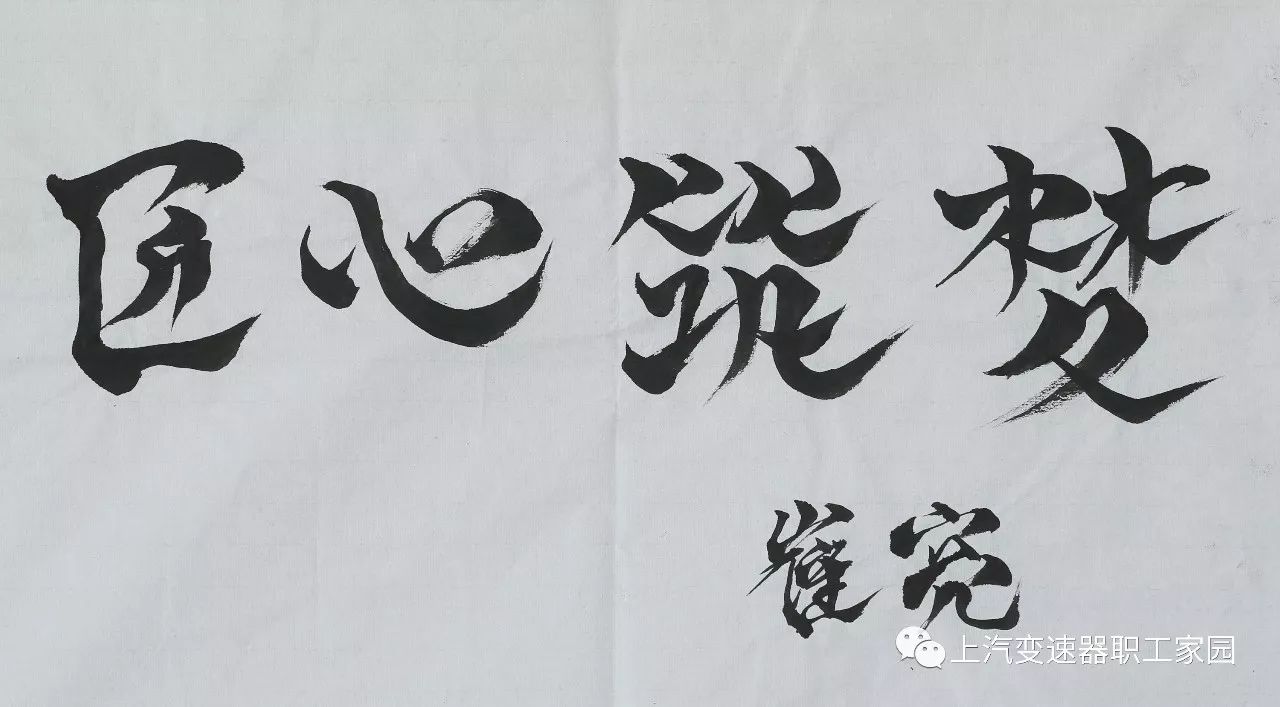 匠心筑梦
崔
上汽变速器职工家园